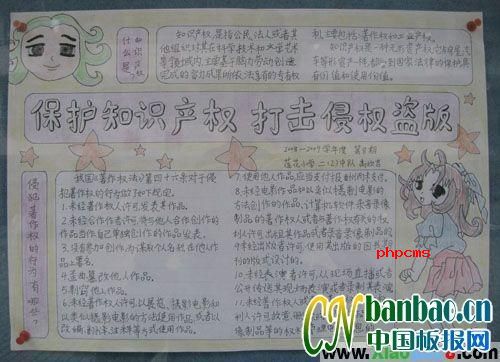 知识产权是什么?
知识产权,是指公民、法人或者其
他组织对其在科学技术和文学艺术
等领域内,主要基于脑力劳动创造
完成的智力成果所依法享有的专有权
利,主要包括:著作权和工业产权。
知识产权是一种无形资产权,它与房屋、汽
车等形资产一样,都受到国家法律的保护,具
有价值和使用价值。
保护知识产权 打击侵权盗版
2008-2009学年度 第2期
莲花小学 二(2)中队
侵犯著作权的行为有哪些?
我国《著作权法》第四十六条对于侵
犯著作权的行为做了如下规定。
1.未经著作权人许可发表其作品。
2.未经合作作者许可,将与他人合作创作的
作品当作自己单独创作的作品发表。
3.没有参加创作,为谋取个人名利,在他人作
品上署名。
4.歪曲篡改他人作品。
5.剽窃他人作品。
6.未经著作权人许可,以展览、摄影电影和
以类似摄影电影的方法使用作品,或者以
改编、翻译、注释等方式使用作品。
7.使用他人作品,应当支付报酬而未支付。
8.未经电影作品和以类似摄制电影的
方法创作的作品、计算机软件、录音录像
制品的著作权人或者与著作权有关的权
利人许可,出租其作品或者录音录像制品的
9.未经出版者许可,使用其出版的图书、期
刊的版式设计的。
10.未经表演者许可,从现场直播或者
公开传送其现场表演,或者录制其表演
phpcms
CN banbao.cn
中国板报网